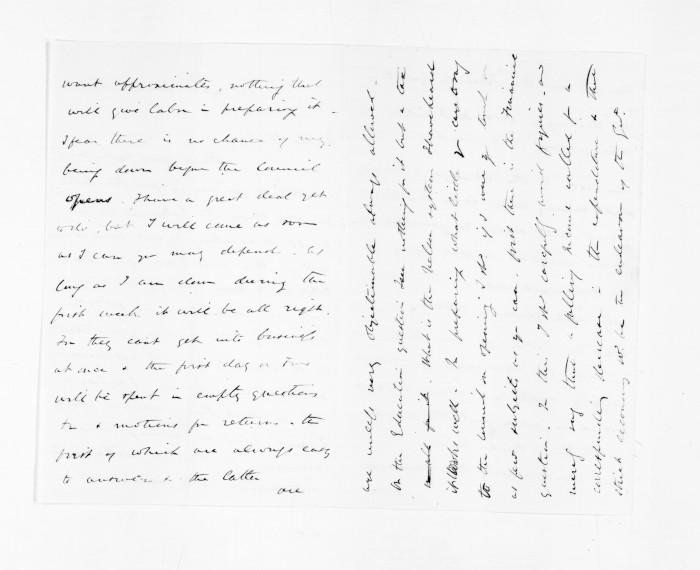 want approximates, nothing that
will give labor in preparing it -
I fear there is no chance of my
being down before the Council
opens. I have a great deal yet
to do, but I will come as soon
as I can you may depend. As
long as I am down during the
first week it will be all right.
For they cant get into business
at once & the first day or two
will be spent in empty questions
& motions for returns - the
first of which are always easy
to answer & the latter
are
are unless very objectionable always allowed.
On the Education question I see nothing for it but a tax
What is the Nelson system I have heard
it works well. In preparing what little you can say
to the Council on opening I shd if I were you touch on
as few subjects as you can. first there is the Financial
question. In this I shd carefully avoid figures and
merely say that a falling Income called for a
corresponding decrease in the expenditure & that
strict economy wd be the endeavour of the Govt.